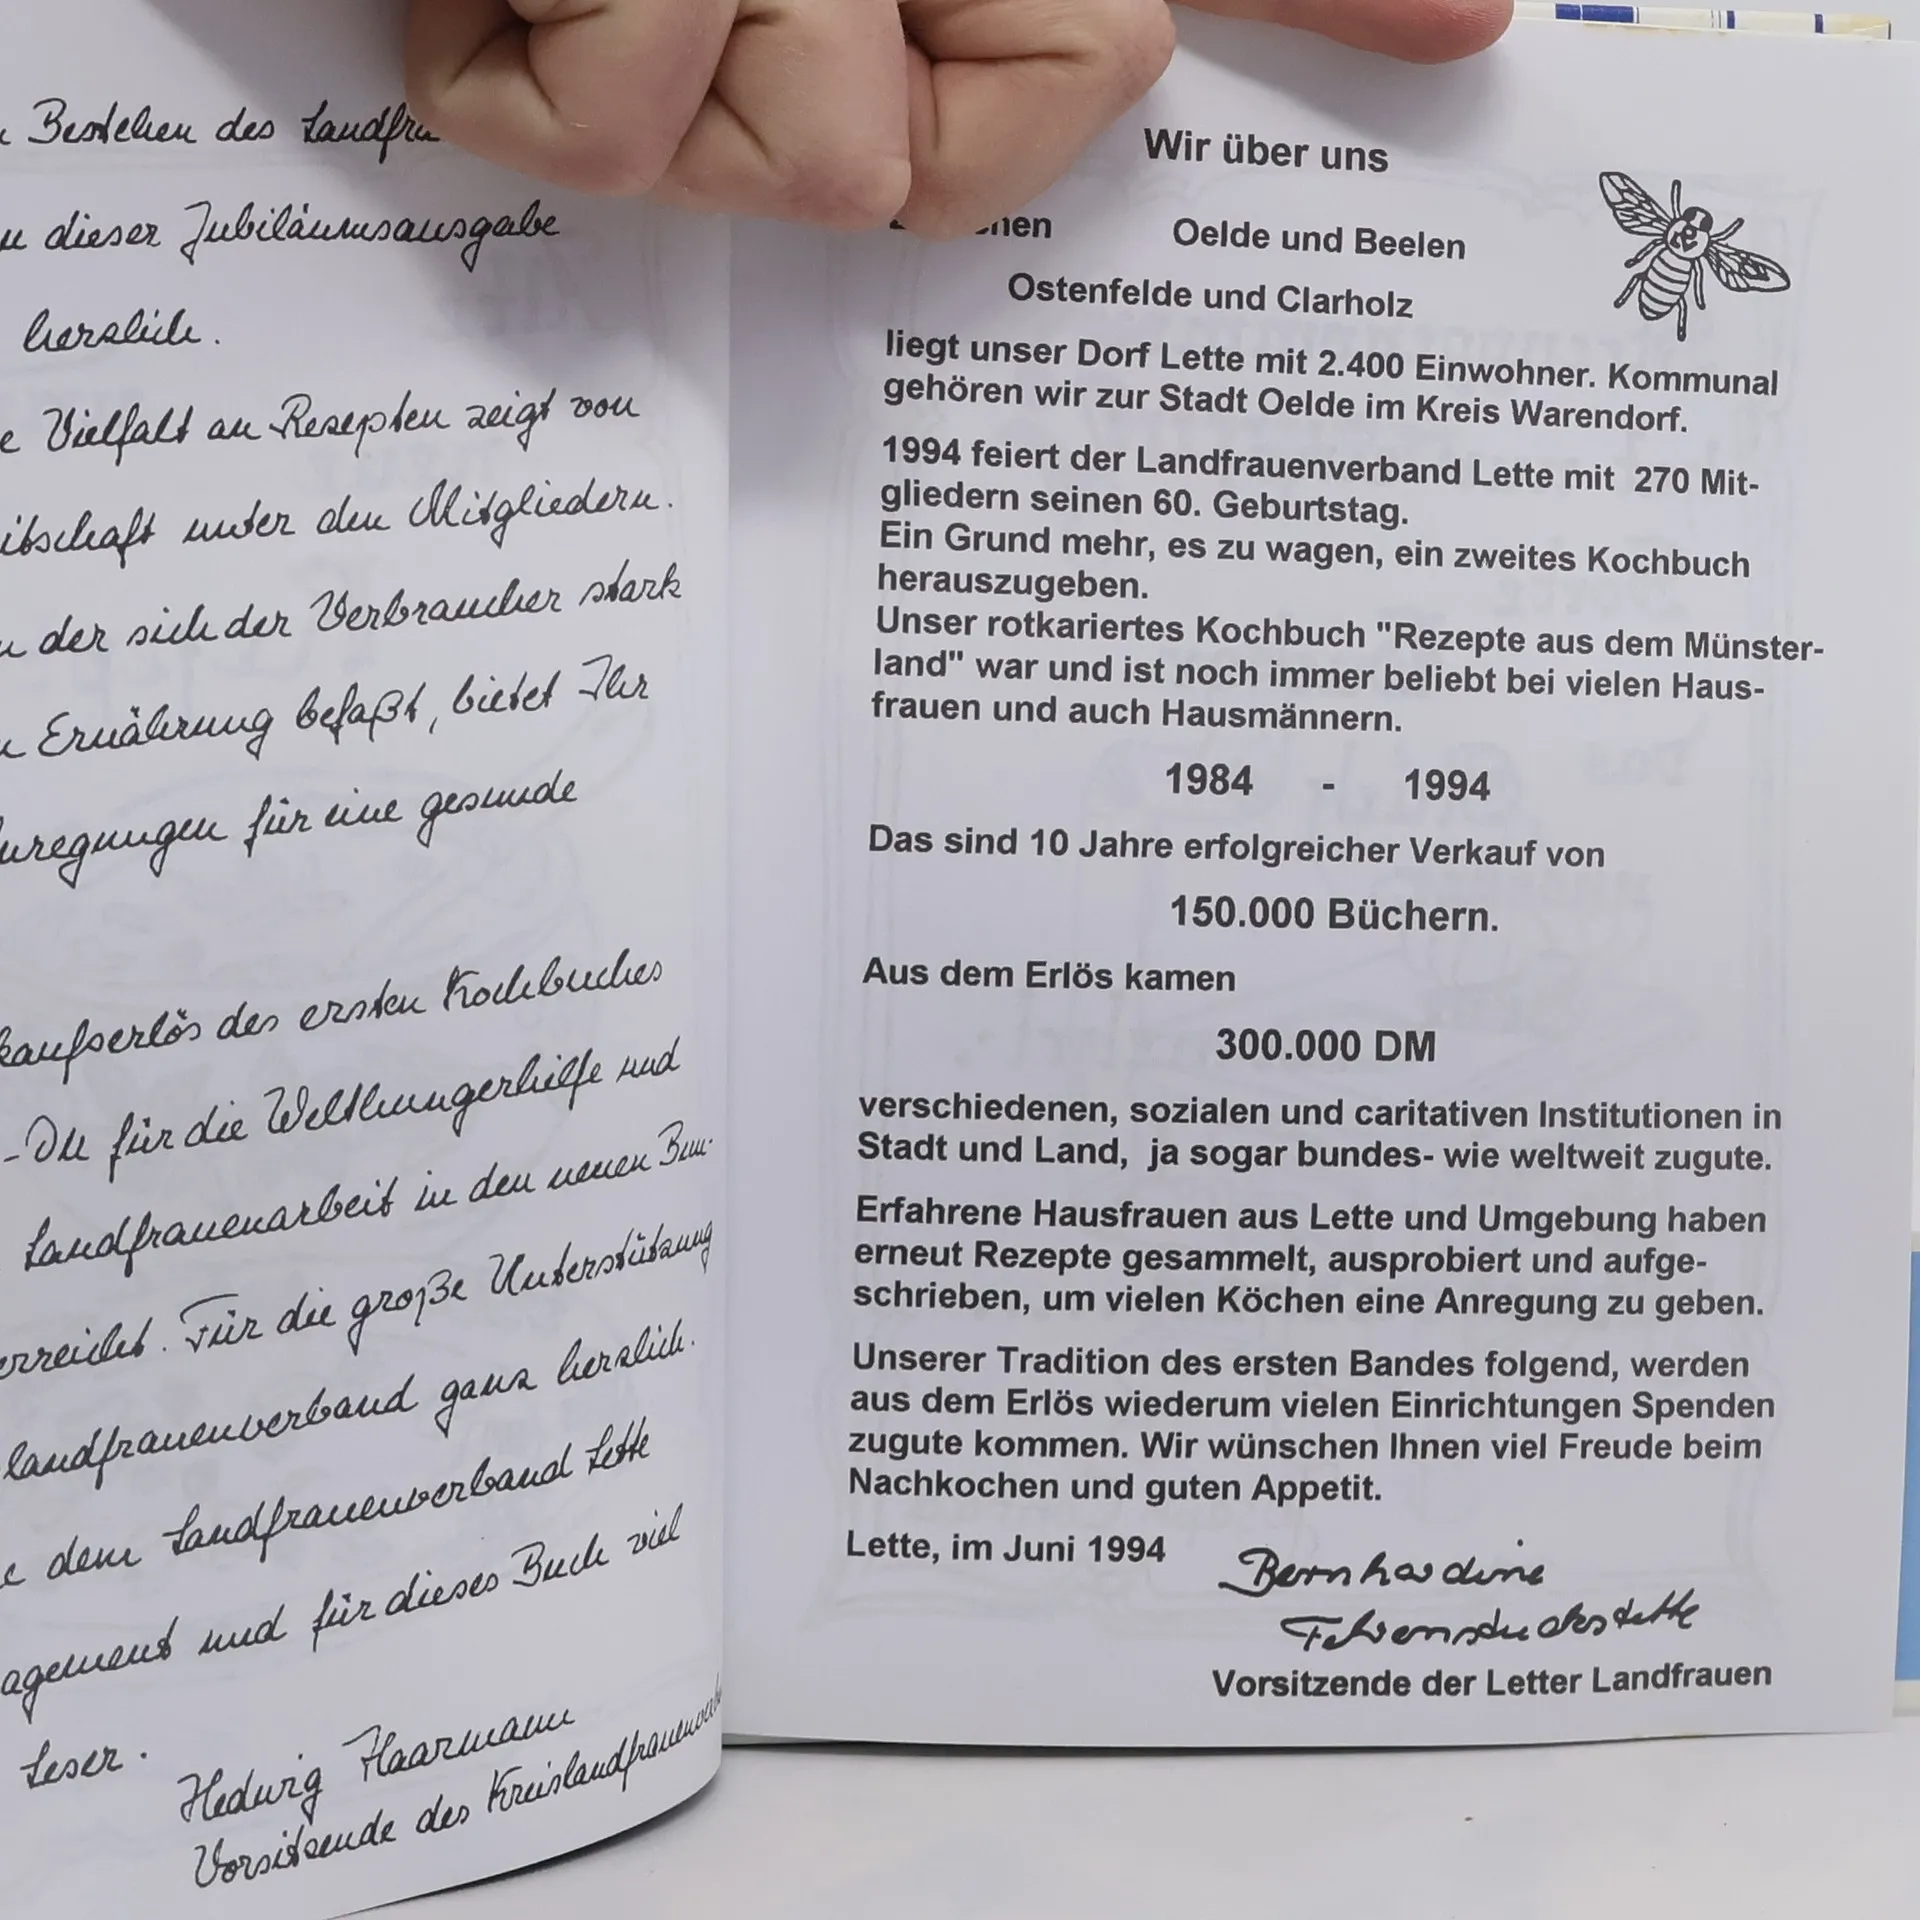 Bestehen des Landfrau
dieser Jubiläumsausgabe
herzlich.
Vielfalt an Rezepten zeigt von
unter den Mitgliedern.
der sich der Verbraucher stark
Ernährung befaßt, bietet Ihr
für eine gesunde
kaufserlös des ersten Kochbuches
-DM für die Welthungerhilfe und
Landfrauenarbeit in den neuen Bun-
erreicht. Für die große Unterstützung
landfrauenverband ganz herzlich.
dem Landfrauenverband Lette
agement und für dieses Buch viel
Leser.
Hedwig Haarmann
Vorsitzende des Kreislandfrauenverba
Wir über uns
Oelde und Beelen
Ostenfelde und Clarholz
liegt unser Dorf Lette mit 2.400 Einwohner. Kommunal
gehören wir zur Stadt Oelde im Kreis Warendorf.
1994 feiert der Landfrauenverband Lette mit 270 Mit-
gliedern seinen 60. Geburtstag.
Ein Grund mehr, es zu wagen, ein zweites Kochbuch
herauszugeben.
Unser rotkariertes Kochbuch "Rezepte aus dem Münster-
land" war und ist noch immer beliebt bei vielen Haus-
frauen und auch Hausmännern.
1984 - 1994
Das sind 10 Jahre erfolgreicher Verkauf von
150.000 Büchern.
Aus dem Erlös kamen
300.000 DM
verschiedenen, sozialen und caritativen Institutionen in
Stadt und Land, ja sogar bundes- wie weltweit zugute.
Erfahrene Hausfrauen aus Lette und Umgebung haben
erneut Rezepte gesammelt, ausprobiert und aufge-
schrieben, um vielen Köchen eine Anregung zu geben.
Unserer Tradition des ersten Bandes folgend, werden
aus dem Erlös wiederum vielen Einrichtungen Spenden
zugute kommen. Wir wünschen Ihnen viel Freude beim
Nachkochen und guten Appetit.
Lette, im Juni 1994
Bernhardine
Vorsitzende der Letter Landfrauen